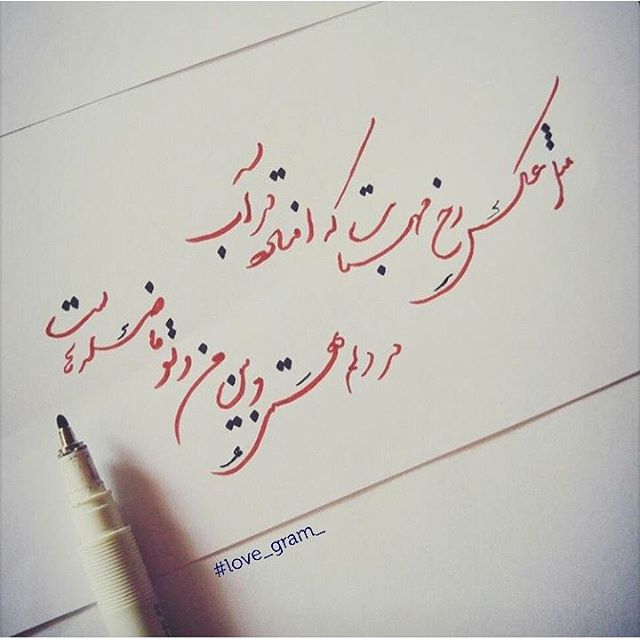 مثل عکس رخ مهتاب که افتاده در آب
در دلم هستی و بین من و تو فاصله هاست
#love_gram_